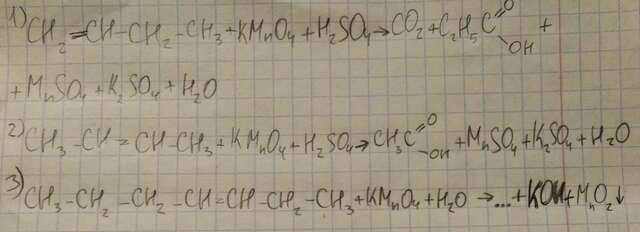 1) CH₂=CH-CH₂-CH₃+KMnO₄+H₂SO₄→CO₂+C₂H₅C=O-OH+
+MnSO₄+K₂SO₄+H₂O
2) CH₃-CH=CH-CH₃+KMnO₄+H₂SO₄→CH₃C=O-OH+MnSO₄+K₂SO₄+H₂O
3) CH₃-CH₂-CH₂-CH=CH-CH₂-CH₃+KMnO₄+H₂O→...+KOH+MnO₂↓